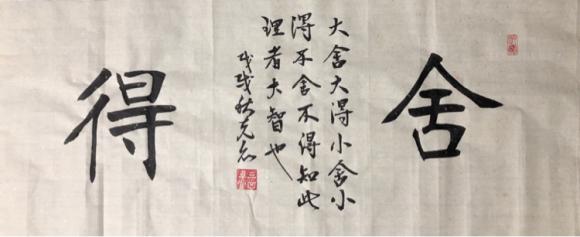 舍
得
大舍大得小舍小
得不舍不得知此
理者大智也
戊戌秋克志